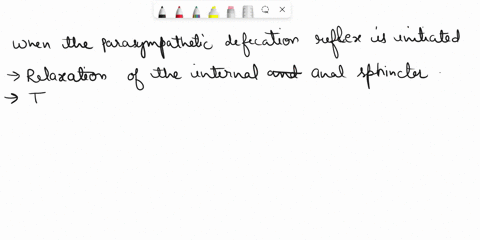 when the parasympathetic defecation reflex is initiated
→ Relaxation of the internal and anal sphincter.
→ T